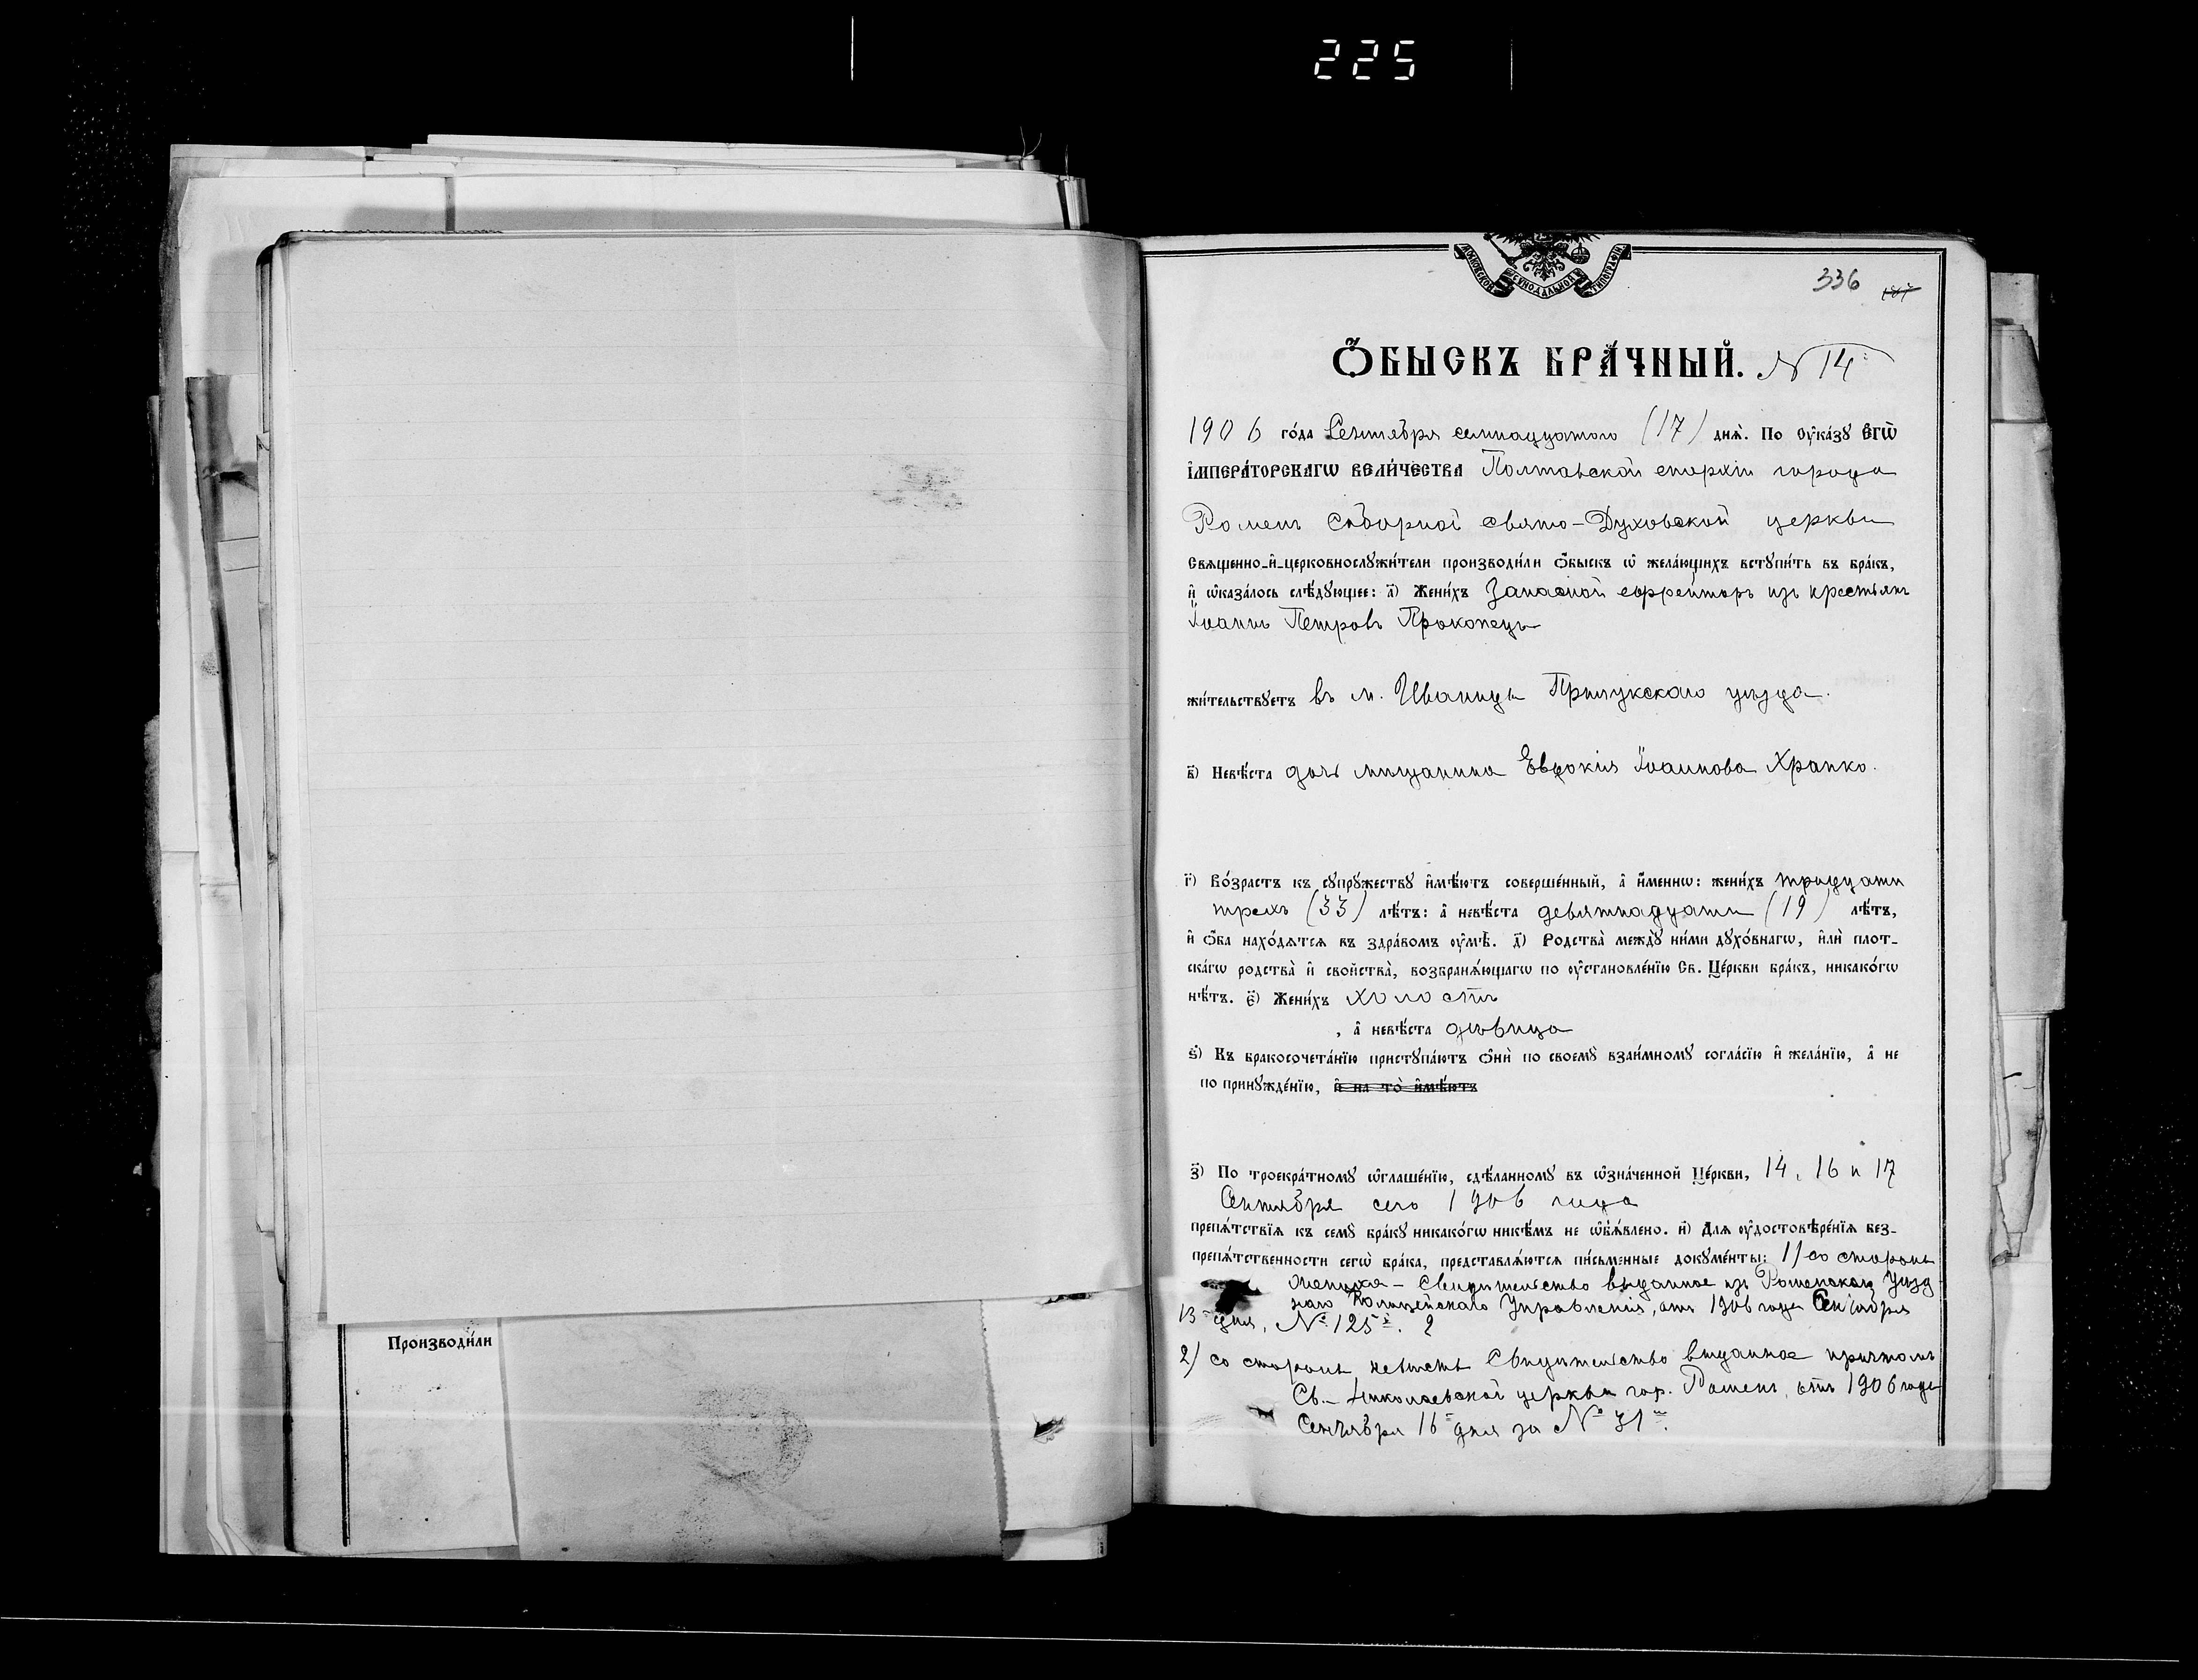 225
МОСКОВСКОЙ СѴНОДАЛЬНОЙ ТИПОГРАФІИ
336
Ѻ҆БЫСКЪ БРА́ЧНЫЙ. N 14
1906 го́да Сентября семнадцатого (17) дня̀. По ᲂу҆ка́зꙋ ЕГѠ̀
І҆МПЕРА́ТОРСКАГѠ ВЕЛИ́ЧЕСТВА Полтавской епархіи города
Ромен Соборной Свято-Духовской церкви
Свѧщенно-и҆-церковнослꙋжи́тели производи́ли ѻ҆́быскъ ѡ҆ жела́ющихъ встꙋпи́ть въ бра́къ,
и҆ ѡ҆каза́лось слѣ́дꙋющее: а҃) Жени́хъ Запасной ефрейторъ изъ крестьян
Іоаннъ Петровъ Прокопецъ
жи́тельствꙋетъ въ м. Иваница Прилукскаго уѣзда.
в҃) Невѣ́ста дочь мѣщанина Евдокія Іоаннова Храпко.
г҃) Во́зрастъ къ сꙋпрꙋ́жествꙋ и҆мѣ́ютъ соверше́нный, а҆ и҆́менно: жени́хъ тридцати
трехъ (33) лѣ́тъ: а҆ невѣ́ста девятнадцати (19) лѣ́тъ,
и҆ ѻ҆́ба нахо́дѧтсѧ въ здра́вомъ ᲂу҆мѣ̀. д҃) Родства̀ междꙋ̀ ни́ми дꙋхо́внагѡ, и҆лѝ плот-
ска́гѡ родства̀ и҆ свойства̀, возбранѧ́ющагѡ по ᲂу҆становле́нїю Св. Це́ркви бра́къ, никако́гѡ
нѣ́тъ. є҃) Жени́хъ холостъ
, а҆ невѣ́ста дѣвица
ѕ҃) Къ бракосочета́нїю пристꙋпа́ютъ ѻ҆нѝ по своемꙋ̀ взаи́мномꙋ согла́сїю и҆ жела́нїю, а҆ не
по принꙋжде́нїю, и҆ на то̀ и҆мѣ́ютъ
з҃) По троекра́тномꙋ ѡ҆глаше́нїю, сдѣ́ланномꙋ въ ѡ҆зна́ченной Це́ркви, 14, 16 и 17
Сентября сего 1906 года
препѧ́тствїѧ къ семꙋ̀ бра́кꙋ никако́гѡ никѣ́мъ не ѡ҆б̾ѧ́влено. и҃) Для ᲂу҆достовѣре́нїѧ без-
препѧ́тственности сегѡ̀ бра́ка, представлѧ́ютсѧ пи́сьменные докꙋме́нты: 1) со стороны
жениха - Свидѣтельство выданное изъ Роменскаго Уѣзд
наго Полицейскаго Управленія, отъ 1906 года Сентября
13 дня, № 125
2) со стороны невѣсты Свидѣтельство выданное причтомъ
Св.-Николаевской церкви гор. Ромен, отъ 1906 года
Сентября 16 дня за № 31.
Производи́ли